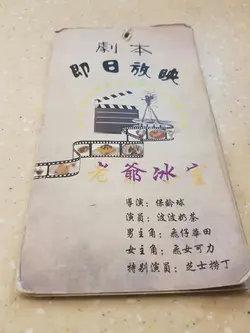 劇本
即日放映
老爺冰室
導演：保齡球
演員：波波奶茶
男主角：飛仔蔡田
女主角：飛女可力
特別演員：芝士撈丁